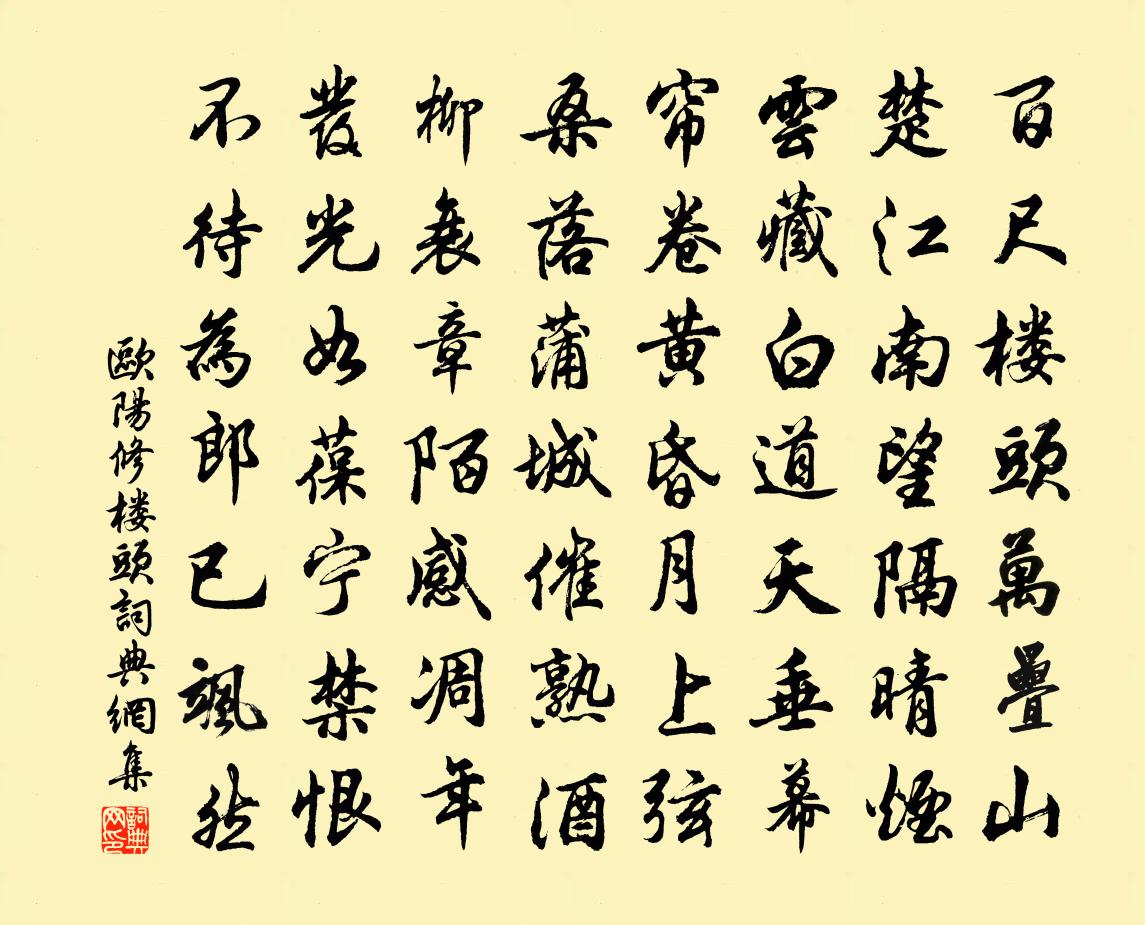 百尺楼頭萬疊山
楚江南望隔晴煙
雲藏白道天垂幕
帘卷黄昏月上弦
桑落蒲城催熟酒
柳衰章陌感凋年
發光如葆宁禁恨
不待為郎已颯然
歐陽修楼頭詞典網集
詞典
网印